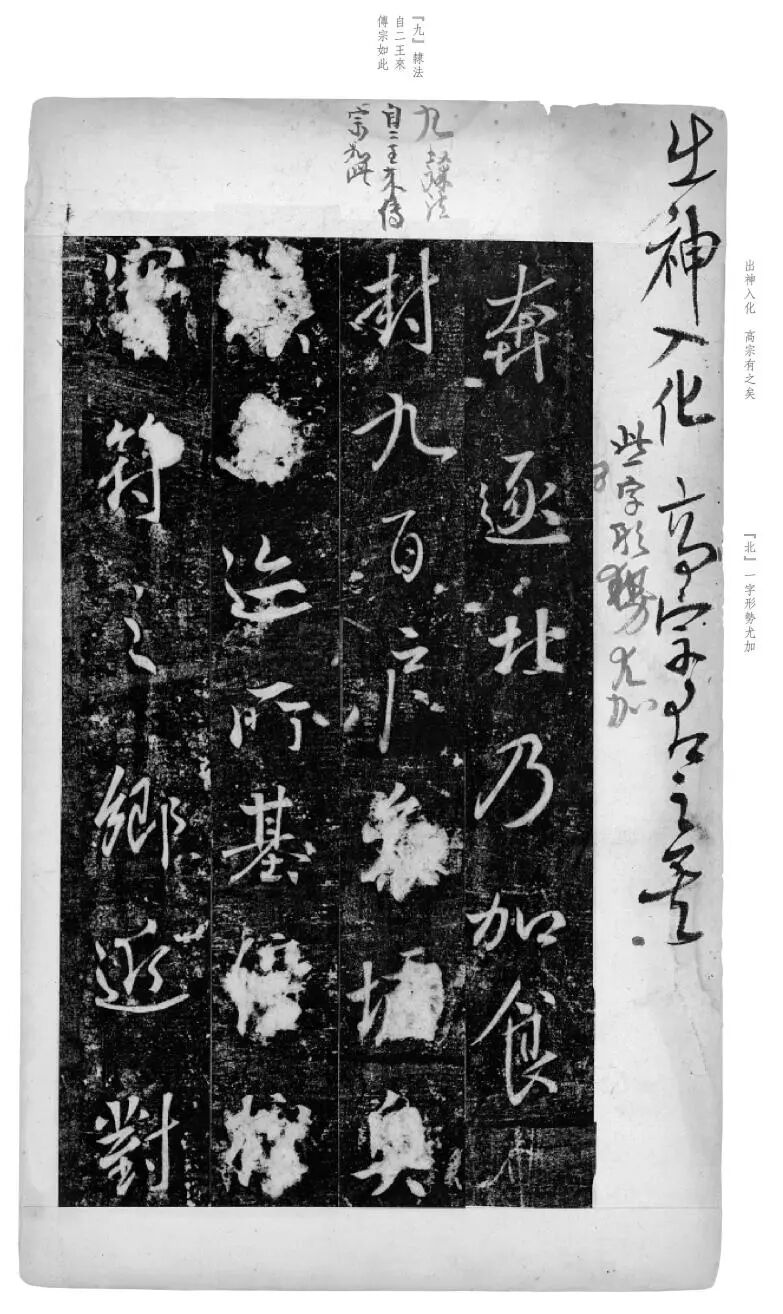 『九』隸法
自二王來
傳宗如此
出神入化　高宗有之矣
『北』一字形勢尤加
九隸法
自二王來傳
宗如此
出神入化高宗有之矣
此字形勢尤加
奔逐北乃加食
封九百戶奧
迹所基
符之鄉對